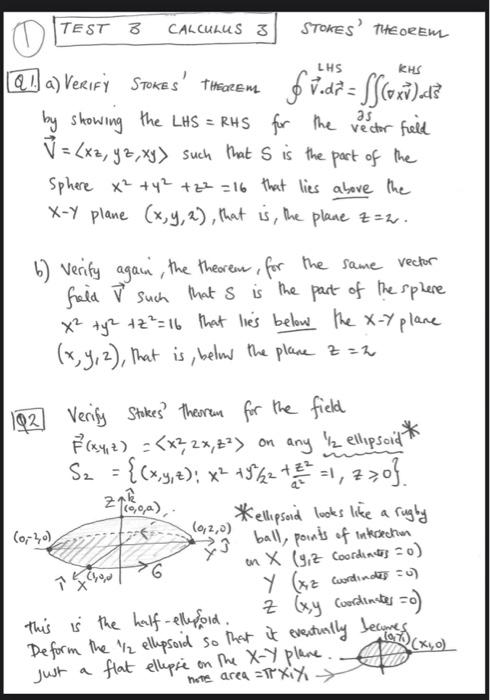 ① TEST 3 CALCULUS 3 STOKES' THEOREM
LHS RHS
Q1. a) VERIFY STOKES' THEOREM ∮ V⃗.dr⃗ = ∬(∇×V⃗).dS⃗
∂S
by showing the LHS = RHS for the vector field
V⃗ = <xz, yz, xy> such that S is the part of the
Sphere x² + y² + z² = 16 that lies above the
X-Y plane (x,y,2), that is, the plane z = 2.
b) Verify again, the theorem, for the same vector
field V⃗ such that S is the part of the sphere
x² + y² + z² = 16 that lies below the X-Y plane
(x,y,2), that is, below the plane z = 2
Q2 Verify Stokes' theorem for the field
F⃗(x,y,z) = <x², 2x, z²> on any ½ ellipsoid*
S₂ = {(x,y,z): x² + y²/2² + z²/a² = 1, z ≥ 0}.
Z k̂
(0,0,a)
(0,-2,0)
(0,2,0)
Y ĵ
î X (1,0,0)
G
* ellipsoid looks like a rugby
ball, points of intersection
on X (y,z coordinates = 0)
Y (x,z coordinates = 0)
Z (x,y coordinates = 0)
This is the half-ellipsoid.
Deform the ½ ellipsoid so that it eventually becomes
just a flat ellipse on the X-Y plane.
note area = π X₁Y₁
(0,Y₁)
(X₁,0)